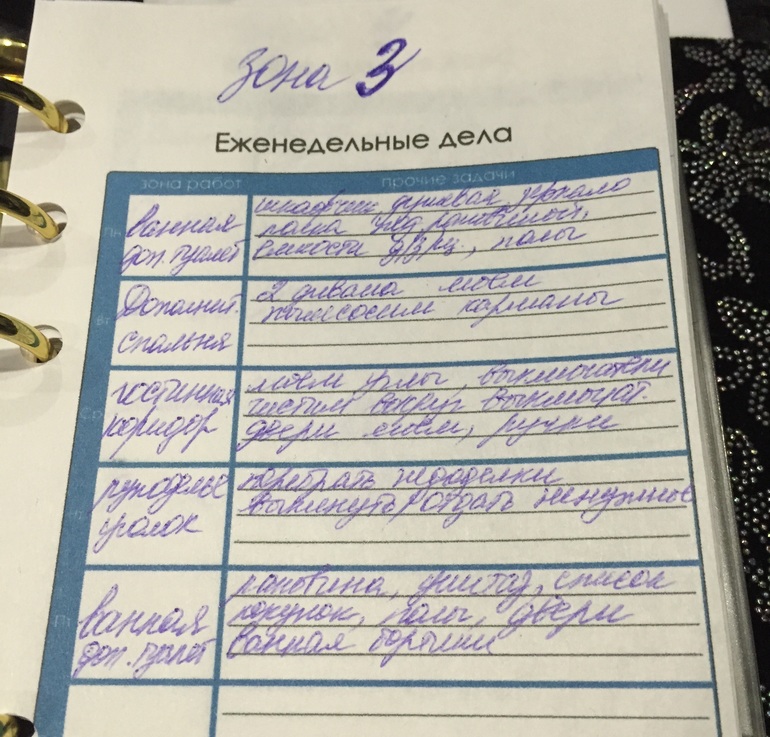 Зона 3
Еженедельные дела
зона работ
прочие задачи
Пн
ванная
доп. туалет
шкафчик, душевая, зеркало
полка над раковиной,
емкости д/зрц., полы
Вт
Дополнит.
спальня
2 дивана моем
пылесосим карманы
Ср
гостинная
коридор
моем углы, выключатели
чистим вокруг выключат.
двери моем, ручки
рукоделье
уголок
перебрать недоделки
выкинуть/отдать ненужное
Пт
ванная
доп. туалет
раковина, унитаз, список
покупок, полы, двери
ванная